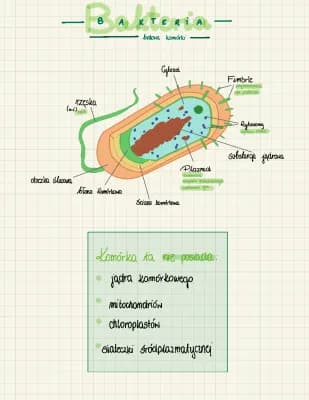 Bakteria
BAKTERIA
budowa komórki
Cytozol
Fimbrie
rzęska
(wić)
Rybosomy
substancja jądrowa
Plazmid
otoczka śluzowa
błona komórkowa
ściana komórkowa
Komórka ta nie posiada:
jądra komórkowego
mitochondriów
chloroplastów
siateczki śródplazmatycznej